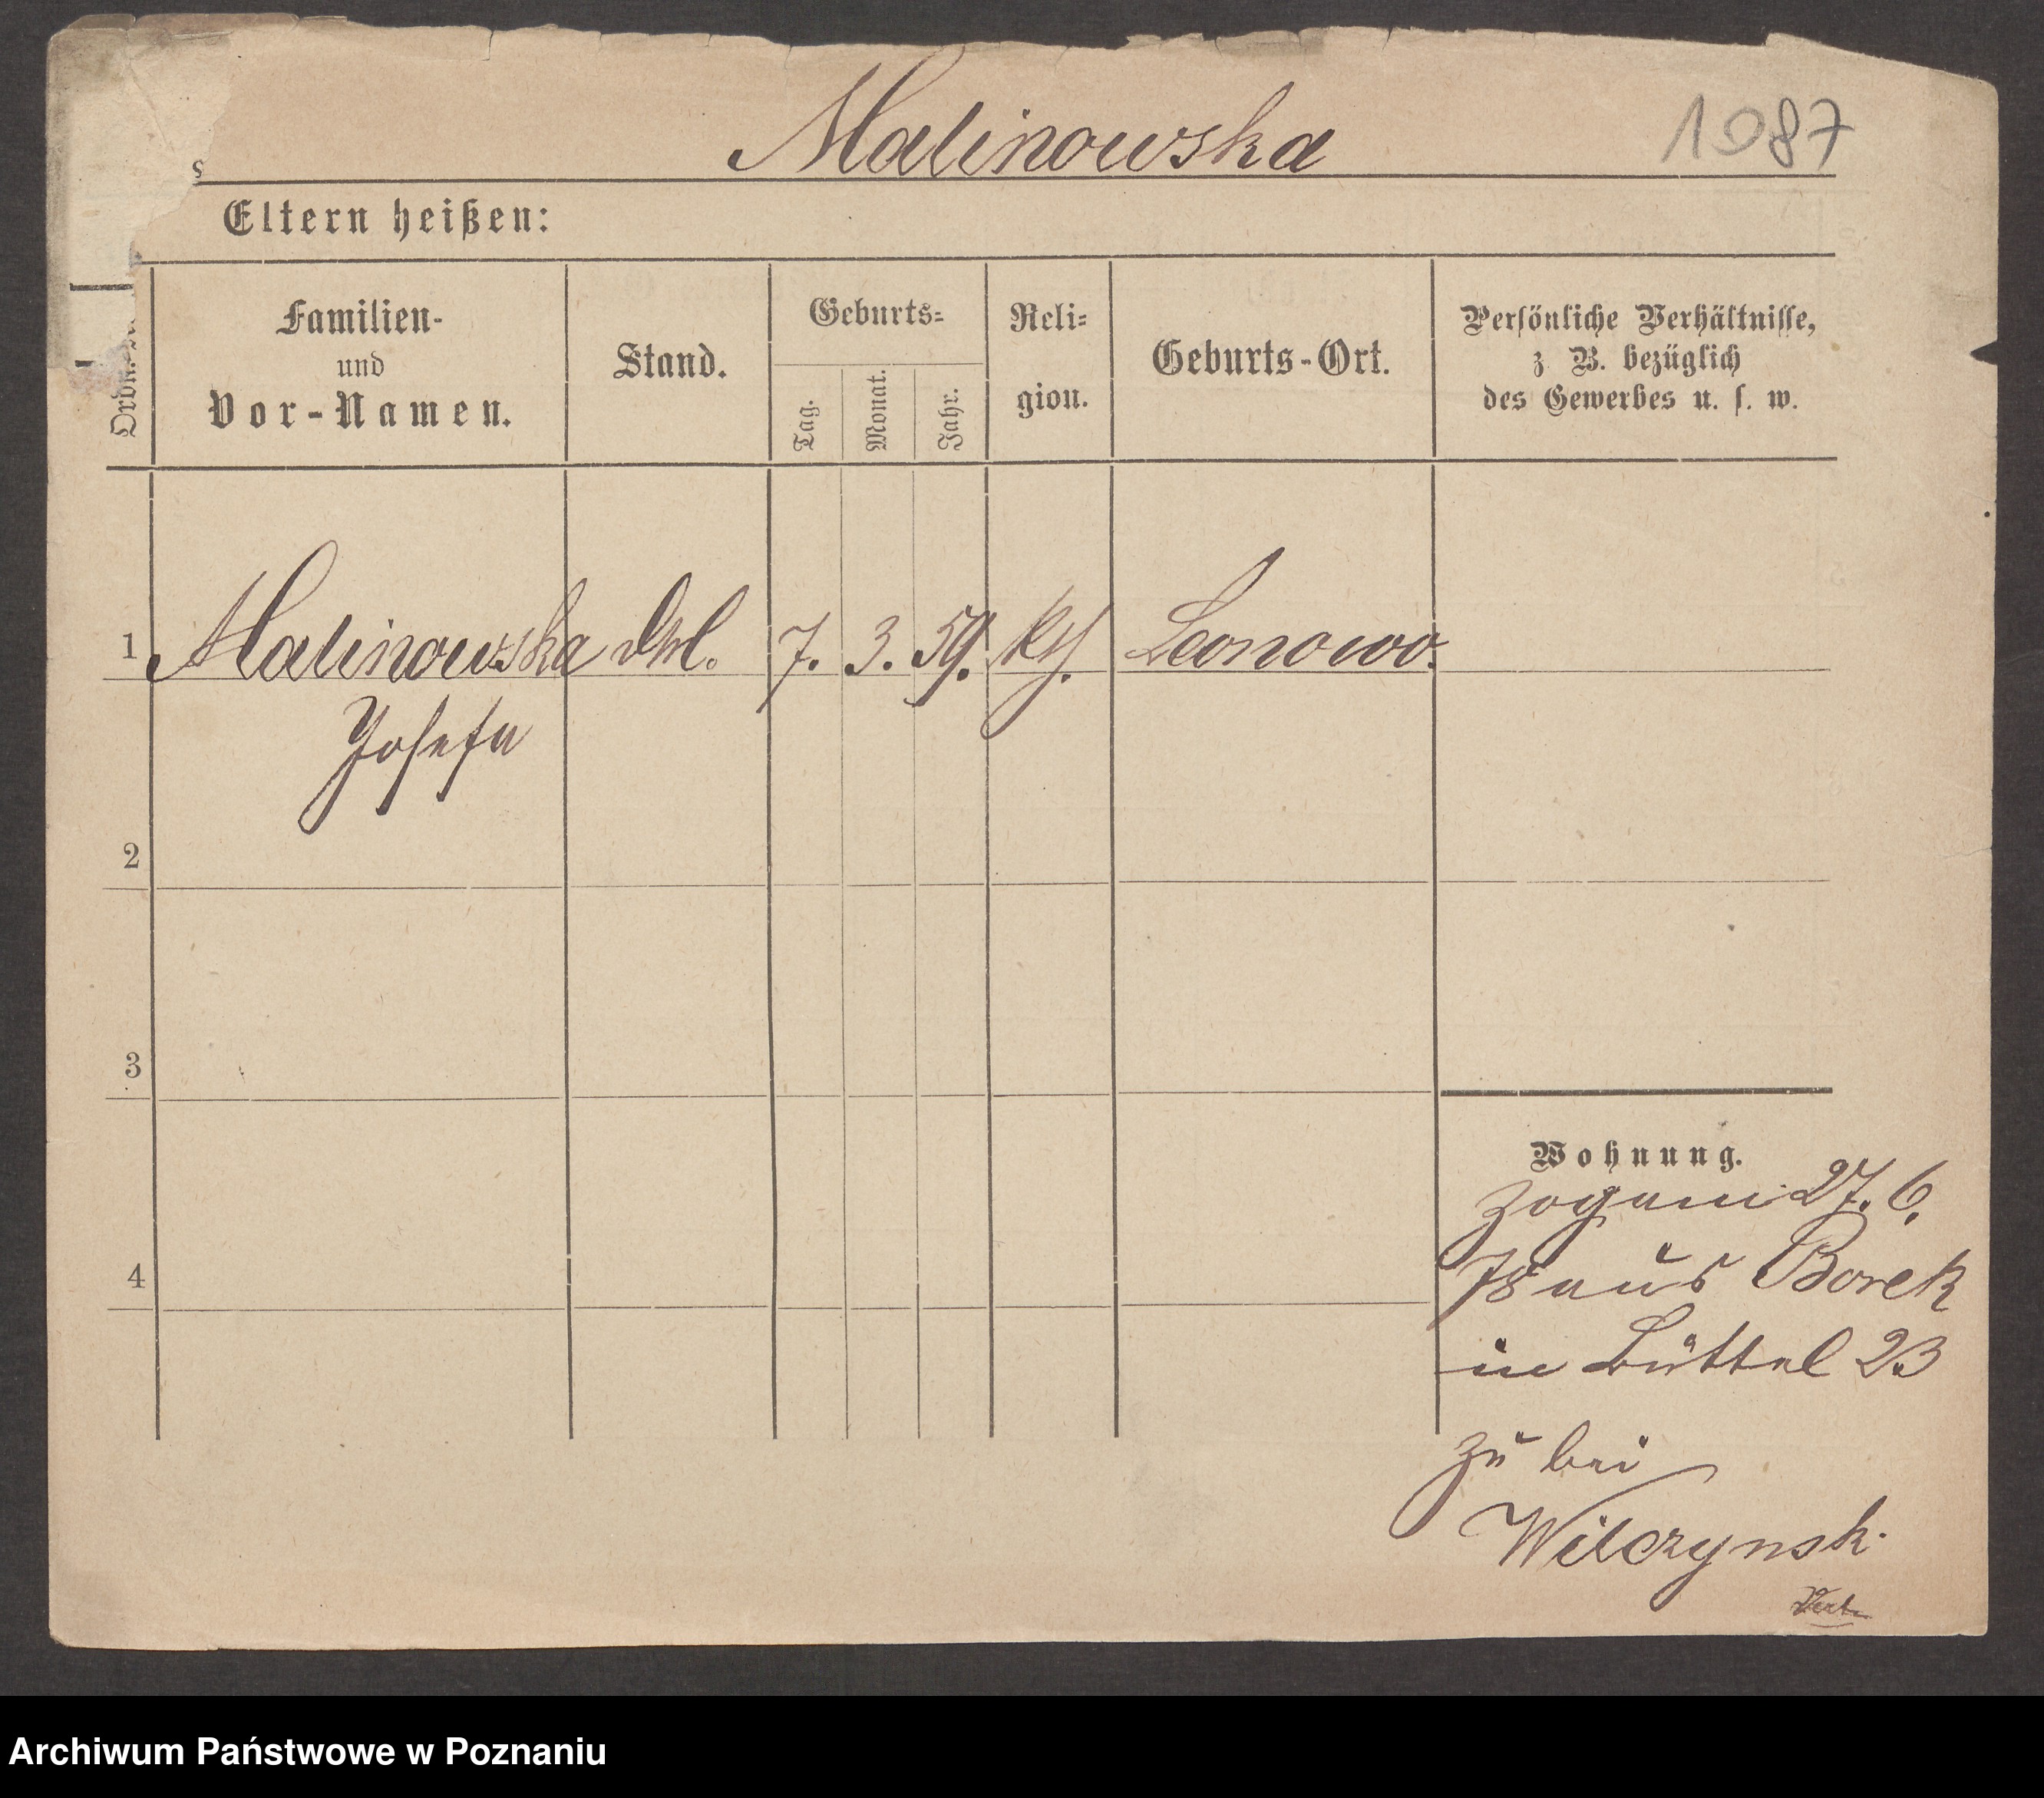 Malinowska 1087
s
Eltern heißen:
Familien-
und
Vor-Namen.
Stand.
Geburts-
Tag.
Monat.
Jahr.
Reli-
gion.
Geburts-Ort.
Persönliche Verhältnisse,
z B. bezüglich
des Gewerbes u. s. w.
1 Malinowska 7. 3. 59. kth. Leonowo.
Josefa
2
3
4
Wohnung.
27. 6.
78 aus Borek
in Büttel 23
zu bei
Wilczynski
Archiwum Państwowe w Poznaniu